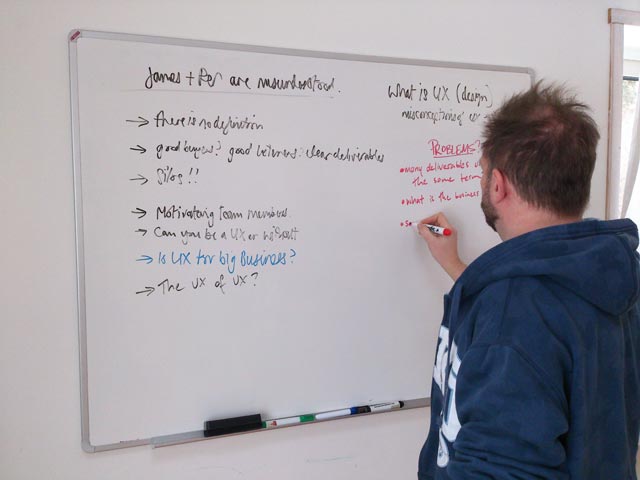 James + Per are misunderstood.
→ there is no definition
→ good buyers? good listeners: clear deliverables
→ Silos!!
→ Motivating team members.
→ Can you be a UX or without
→ Is UX for big Business?
→ The UX of UX?
What is UX (design)
misconceptions of
PROBLEMS?
• many deliverables
the same term
• what is the business
• So